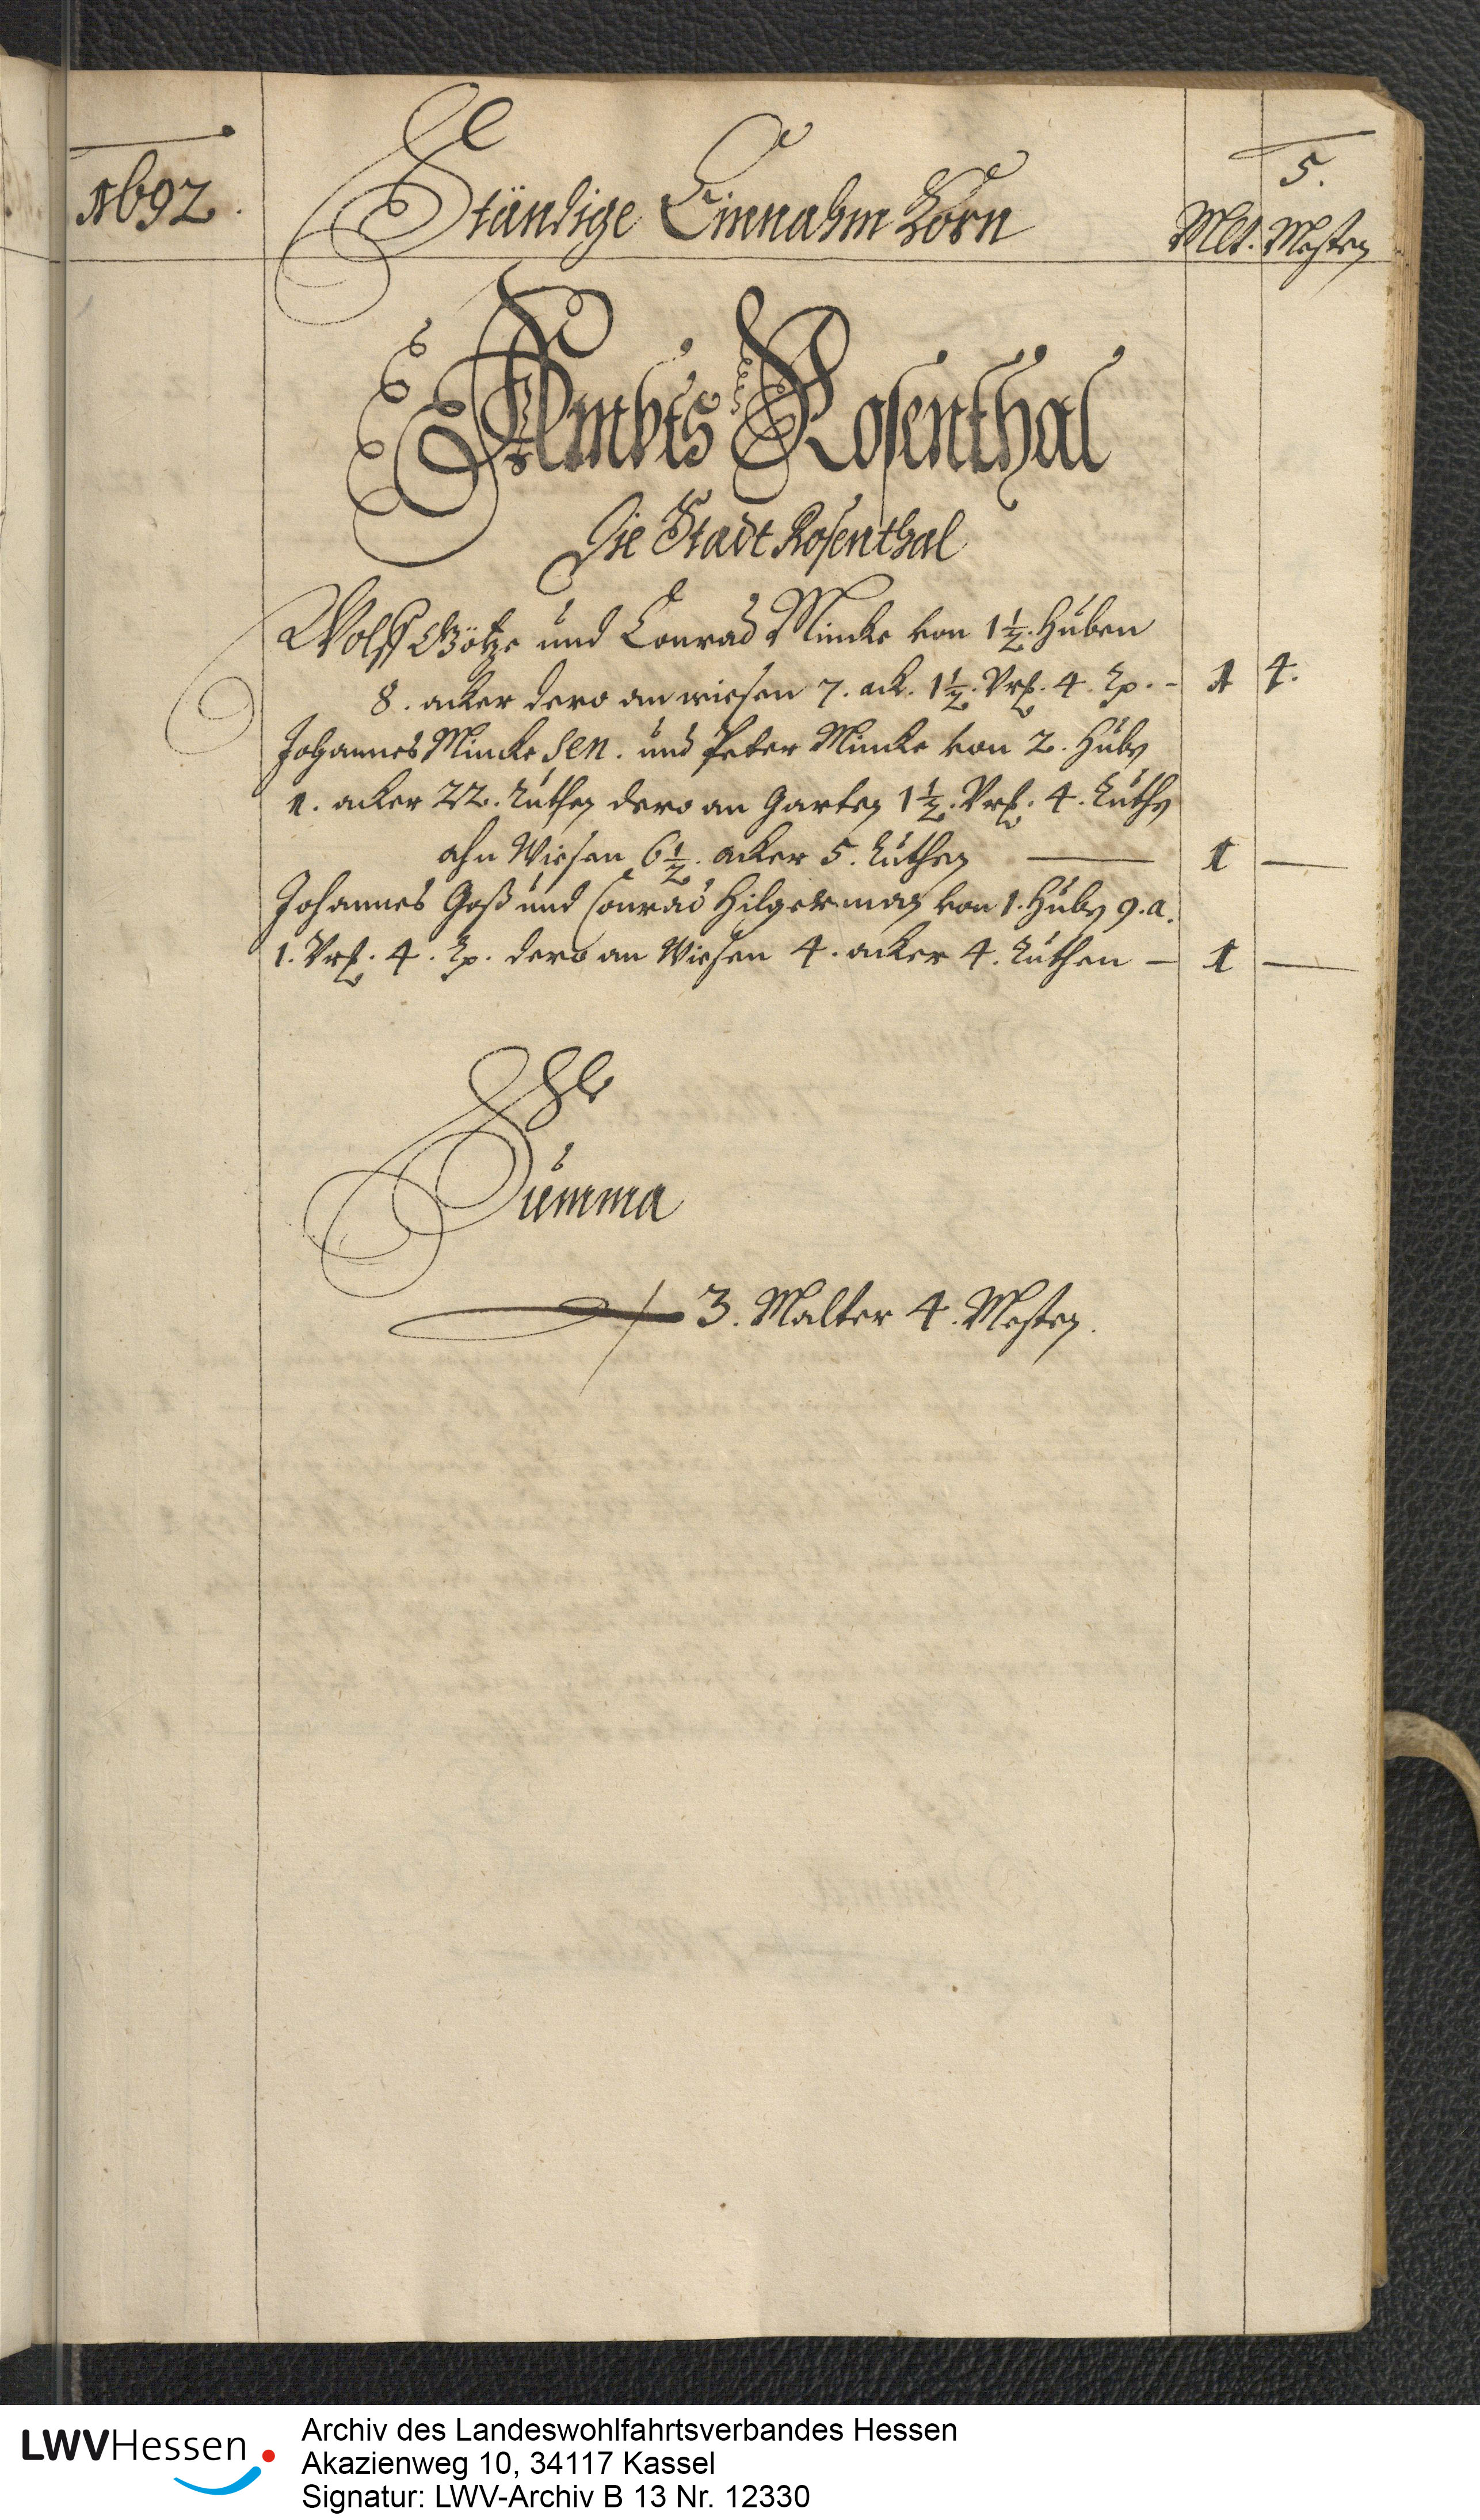 1692.
5.
Ständige Einnahm Korn
Mlt. Mesten
Ambts Rosenthal
Die Stadt Rosenthal
Wolff Götze und Conrad Mincke von 1 1/2. Huben
8. acker dero an wiesen 7. ack. 1 1/2. Vrt. 4. Rh. - 1 4.
Johannes Mincke sen. und Peter Mincke von 2. Hubn
1. acker 22. Ruthen dero an Garten 1 1/2. Vrt. 4. Ruthn
ahn Wiesen 6 1/2. acker 5. Ruthen — 1 —
Johannes Goß und Conrad Hilgerman von 1. Hubn 9. a.
1. Vrt. 4. Rh. dero an Wiesen 4. acker 4. Ruthen — 1 —
Summa
3. Malter 4. Mesten.
LWVHessen
Archiv des Landeswohlfahrtsverbandes Hessen
Akazienweg 10, 34117 Kassel
Signatur: LWV-Archiv B 13 Nr. 12330